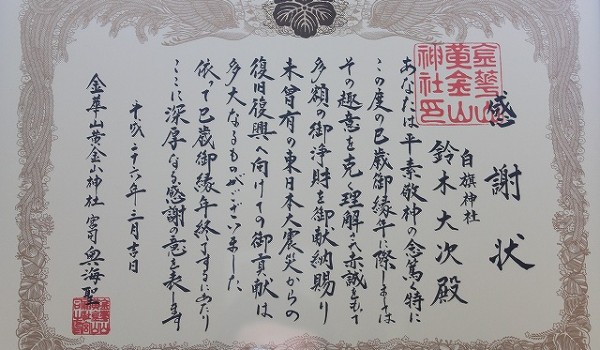 感謝状
白旗神社
鈴木大次殿
あなたは平素敬神の念篤く特に
この度の巳歳御縁年に際しましては
その趣意を克く理解され赤誠をもて
多額の御浄財を御献納賜り
未曾有の東日本大震災からの
復旧復興へ向けての御貢献は
多大なるものがございました
依って巳歳御縁年終するにあたり
ここに深厚なる感謝の意を表します
平成二十六年三月吉日
金華山黄金山神社 宮司 奥海聖
金華山
黄金山
神社印